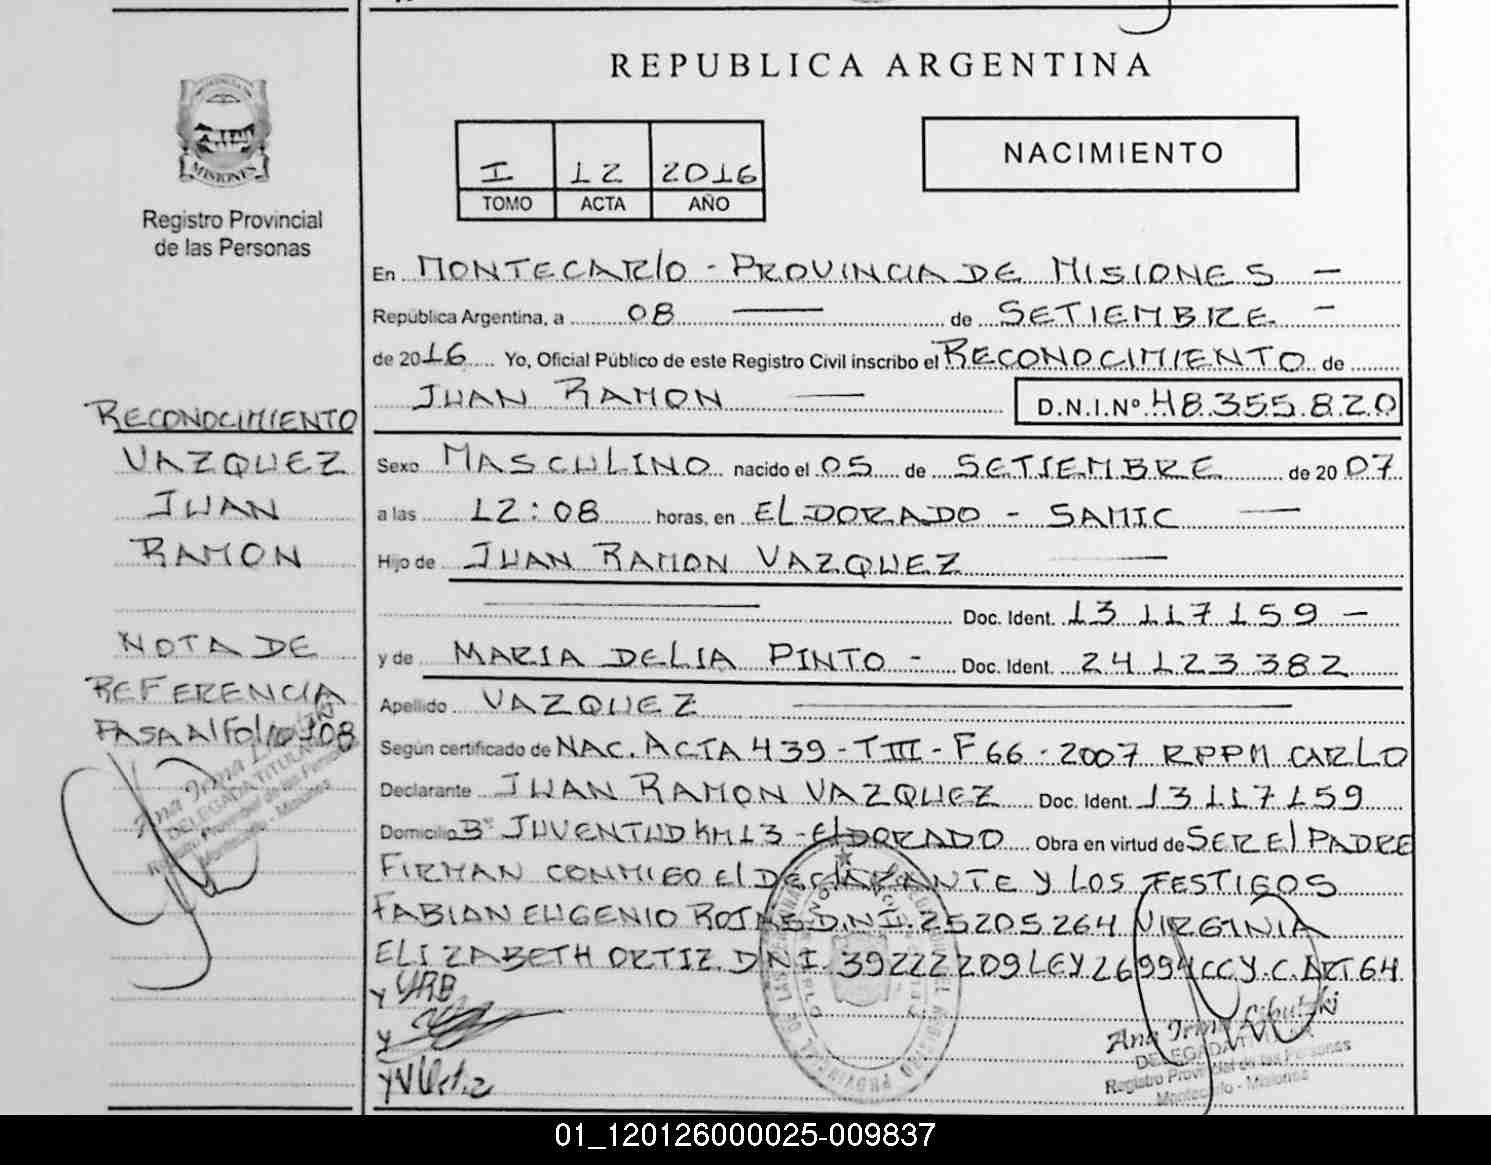 REPUBLICA ARGENTINA
MISIONES
Registro Provincial
de las Personas
I 12 2016
TOMO ACTA AÑO
NACIMIENTO
En MONTECARlO - PROVINCIA DE MISIONES -
República Argentina, a 08 — de SETIEMBRE -
de 2016 Yo, Oficial Público de este Registro Civil inscribo el RECONOCIMIENTO de
JUAN RAMON — D.N.I.Nº 48.355.820
Sexo MASCULINO nacido el 05 de SETIEMBRE de 2007
a las 12:08 horas, en ELDORADO - SAMIC —
Hijo de JUAN RAMON VAZQUEZ —
— Doc. Ident. 13 117 159 -
y de MARIA DELIA PINTO - Doc. Ident. 24 123 382
Apellido VAZQUEZ —
Según certificado de NAC. ACTA 439 - T III - F 66 - 2007 RPPM CARLO
Declarante JUAN RAMON VAZQUEZ Doc. Ident. 13 117 159
Domicilio Bº JUVENTUD KM 13 - ElDORADO Obra en virtud de SER El PADRE
FIRMAN CONMIGO El DEClARANTE Y LOS TESTIGOS
FABIAN EUGENIO ROJAS D.N.I. 25205264 VIRGINIA
ELIZABETH ORTIZ DNI 39222209 LEY 26994 CC Y C. ART 64
RECONOCIMIENTO
VAZQUEZ
JUAN
RAMON
NOTA DE
REFERENCIA
PASA Al FOlIO 108
Ana Irma
DELEGADA TITULAR
Registro Provincial de las Personas
Montecarlo - Misiones
Y
Y
Y
Ana Irma
DELEGADA TITULAR
Registro Provincial de las Personas
Montecarlo - Misiones
01_120126000025-009837